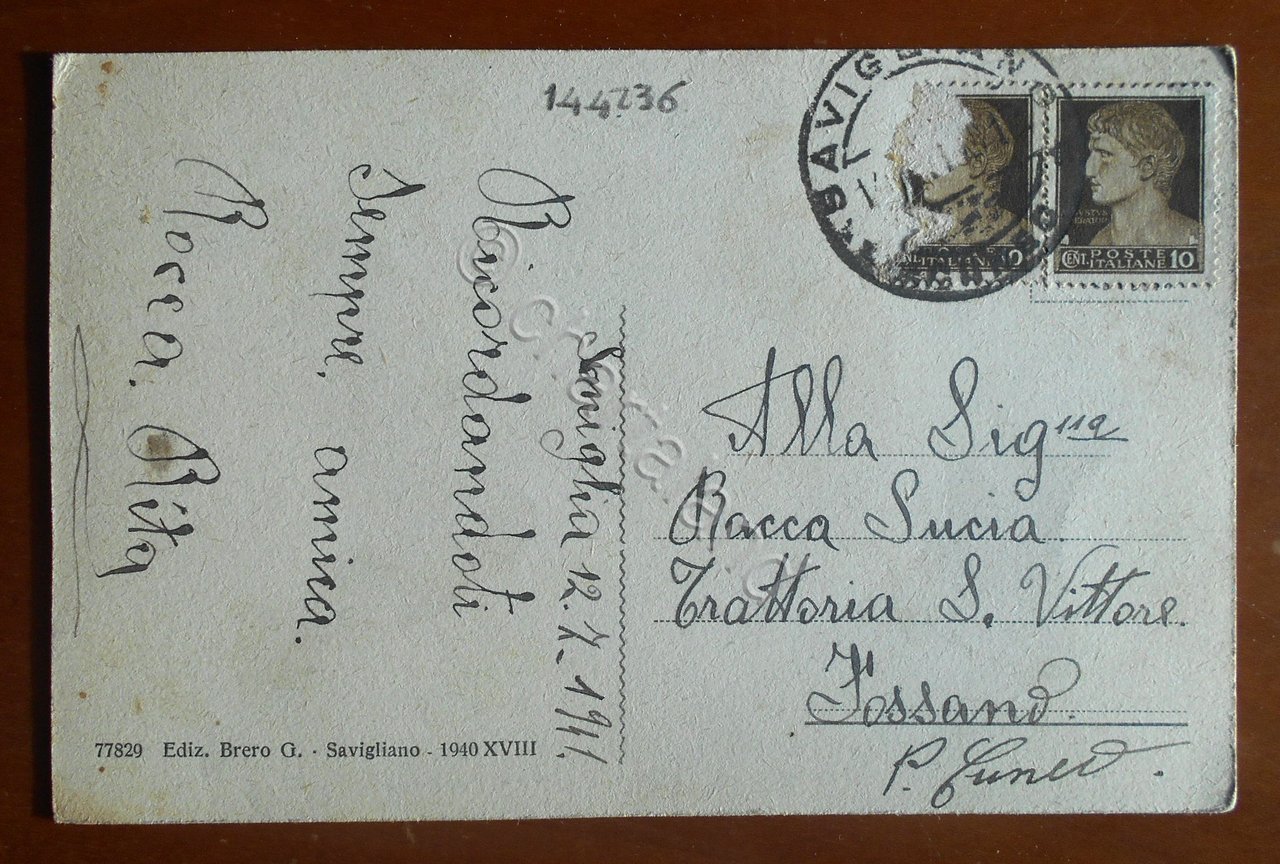 144236
SAVIGLIANO
CUNEO
CENT. POSTE ITALIANE 10
CENT. POSTE ITALIANE 10
Saviglia 12.7.1941.
Ricordandoti
Sempre. amica.
Rocca. Rita
Alla Sigⁿᵃ
Racca Lucia
Trattoria S. Vittore.
Fossano.
P. Cuneo.
77829 Ediz. Brero G. - Savigliano - 1940 XVIII